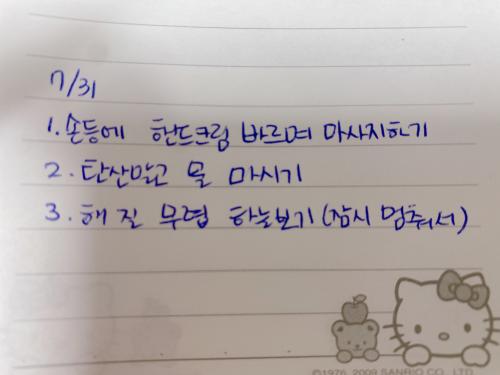 7/31
1. 손등에 핸드크림 바르며 마사지하기
2. 탄산말고 물 마시기
3. 해 질 무렵 하늘보기 (잠시 멈춰서)
©1976, 2009 SANRIO CO., LTD.